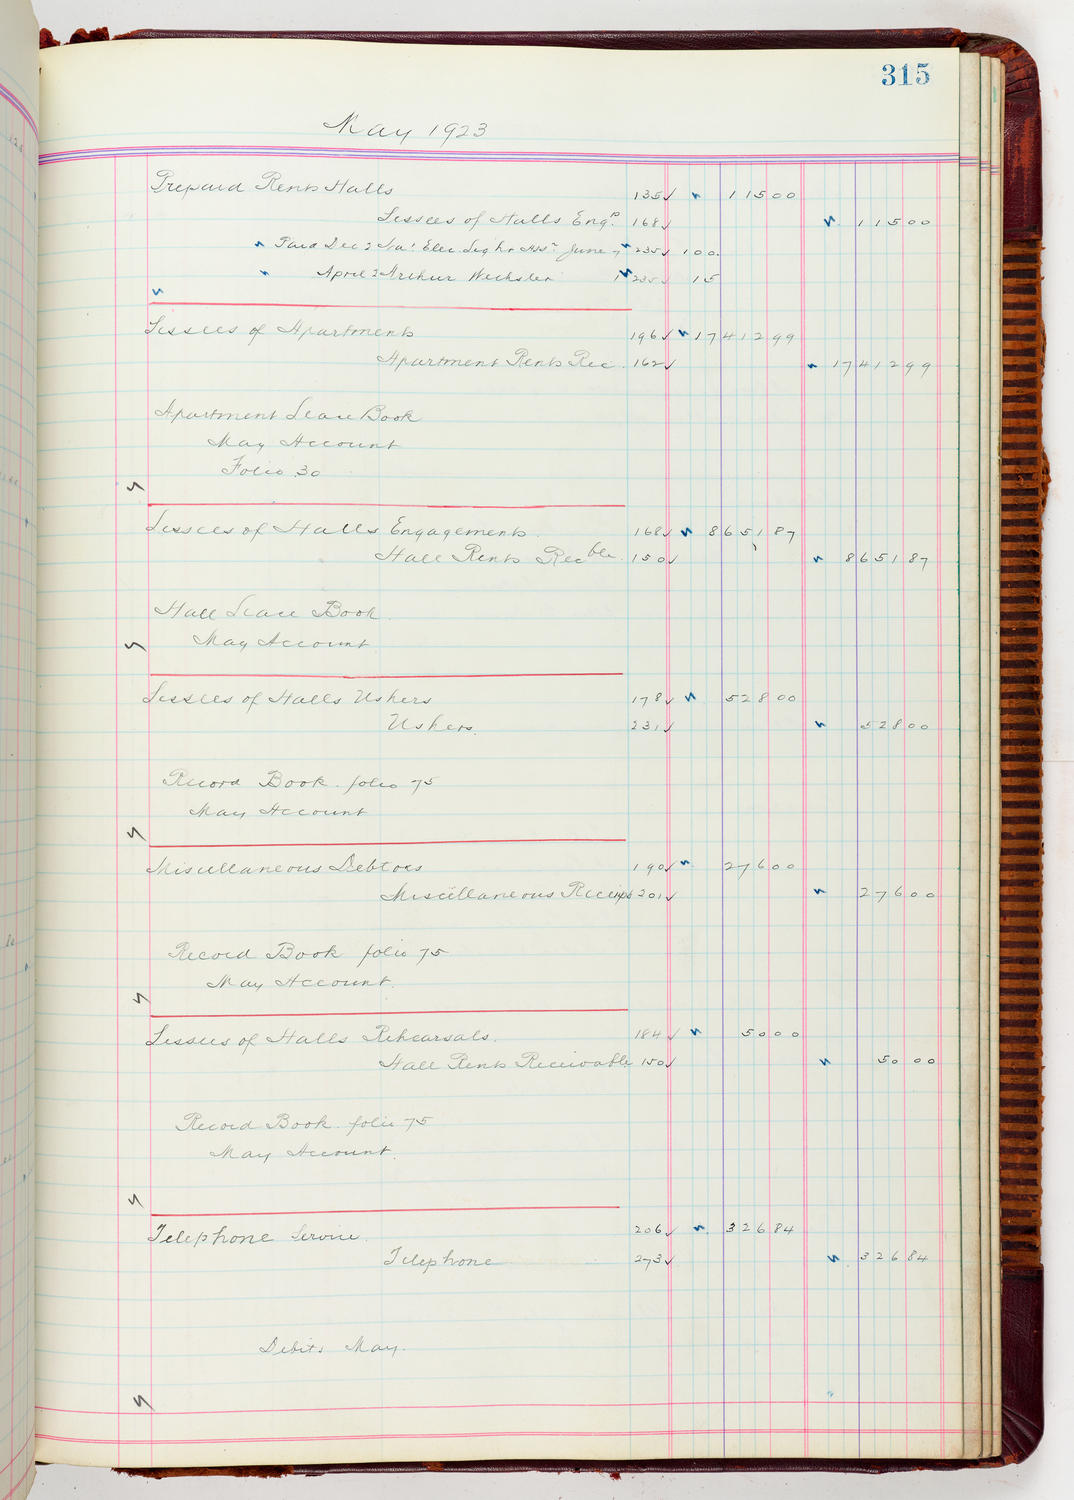 315
May 1923
Prepaid Rents Halls 135 115 00
Lessees of Halls Eng. 168 115 00
Paid Dec 2 Na'l Elec. Light Ass'n June 7 235 100.
April 2 Arthur Wechsler 235 15
Lessees of Apartments 196 17412 99
Apartment Rents Rec. 162 17412 99
Apartment Lease Book
May Account
Folio 30
Lessees of Halls Engagements 168 8651 87
Hall Rents Recble. 150 8651 87
Hall Lease Book
May Account
Lessees of Halls Ushers 178 528 00
Ushers. 231 528 00
Record Book. folio 75
May Account
Miscellaneous Debtors 190 276 00
Miscellaneous Receipts 201 276 00
Record Book folio 75
May Account.
Lessees of Halls Rehearsals. 184 50 00
Hall Rents Receivable 150 50 00
Record Book. folio 75
May Account.
Telephone Service. 206 326 84
Telephone 273 326 84
Debits May.